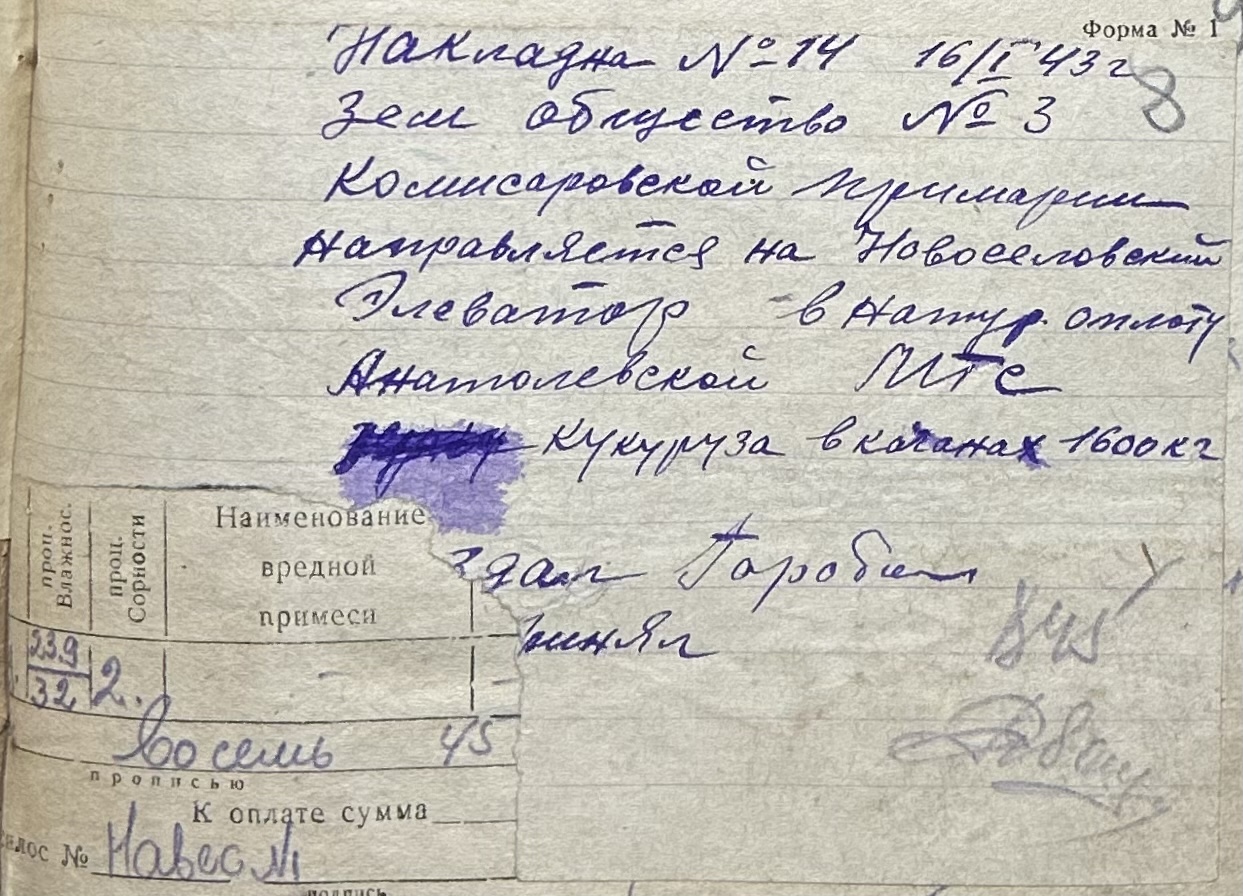 Форма № 1
Накладна № 14 16/I 43 г
8
Зем общество № 3
Комисаровской примарии
направляется на Новоселовский
Элеватор в натур. оплату
Анатолевской МТС
Кукуруза в качанах 1600 кг
здал
инял
845
проц. Влажнос.
проц. Сорности
Наименование
вредной
примеси
23.9
32
2.
Восемь 45
прописью
К оплате сумма
силос № Навес №1
подпись